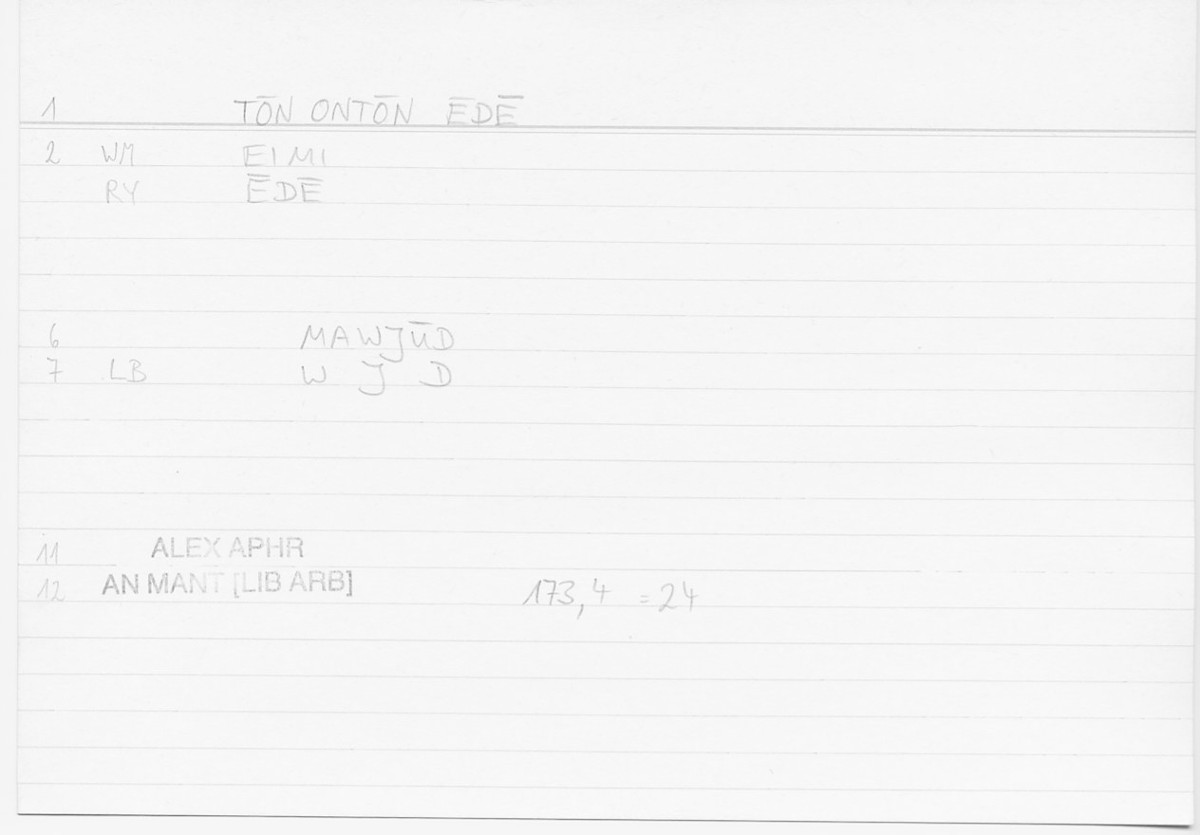 1 TŌN ONTŌN ĒDĒ
2 WM EIMI
RY ĒDĒ
6 MAWJŪD
7 LB W J D
11 ALEX APHR
12 AN MANT [LIB ARB] 173,4 = 24